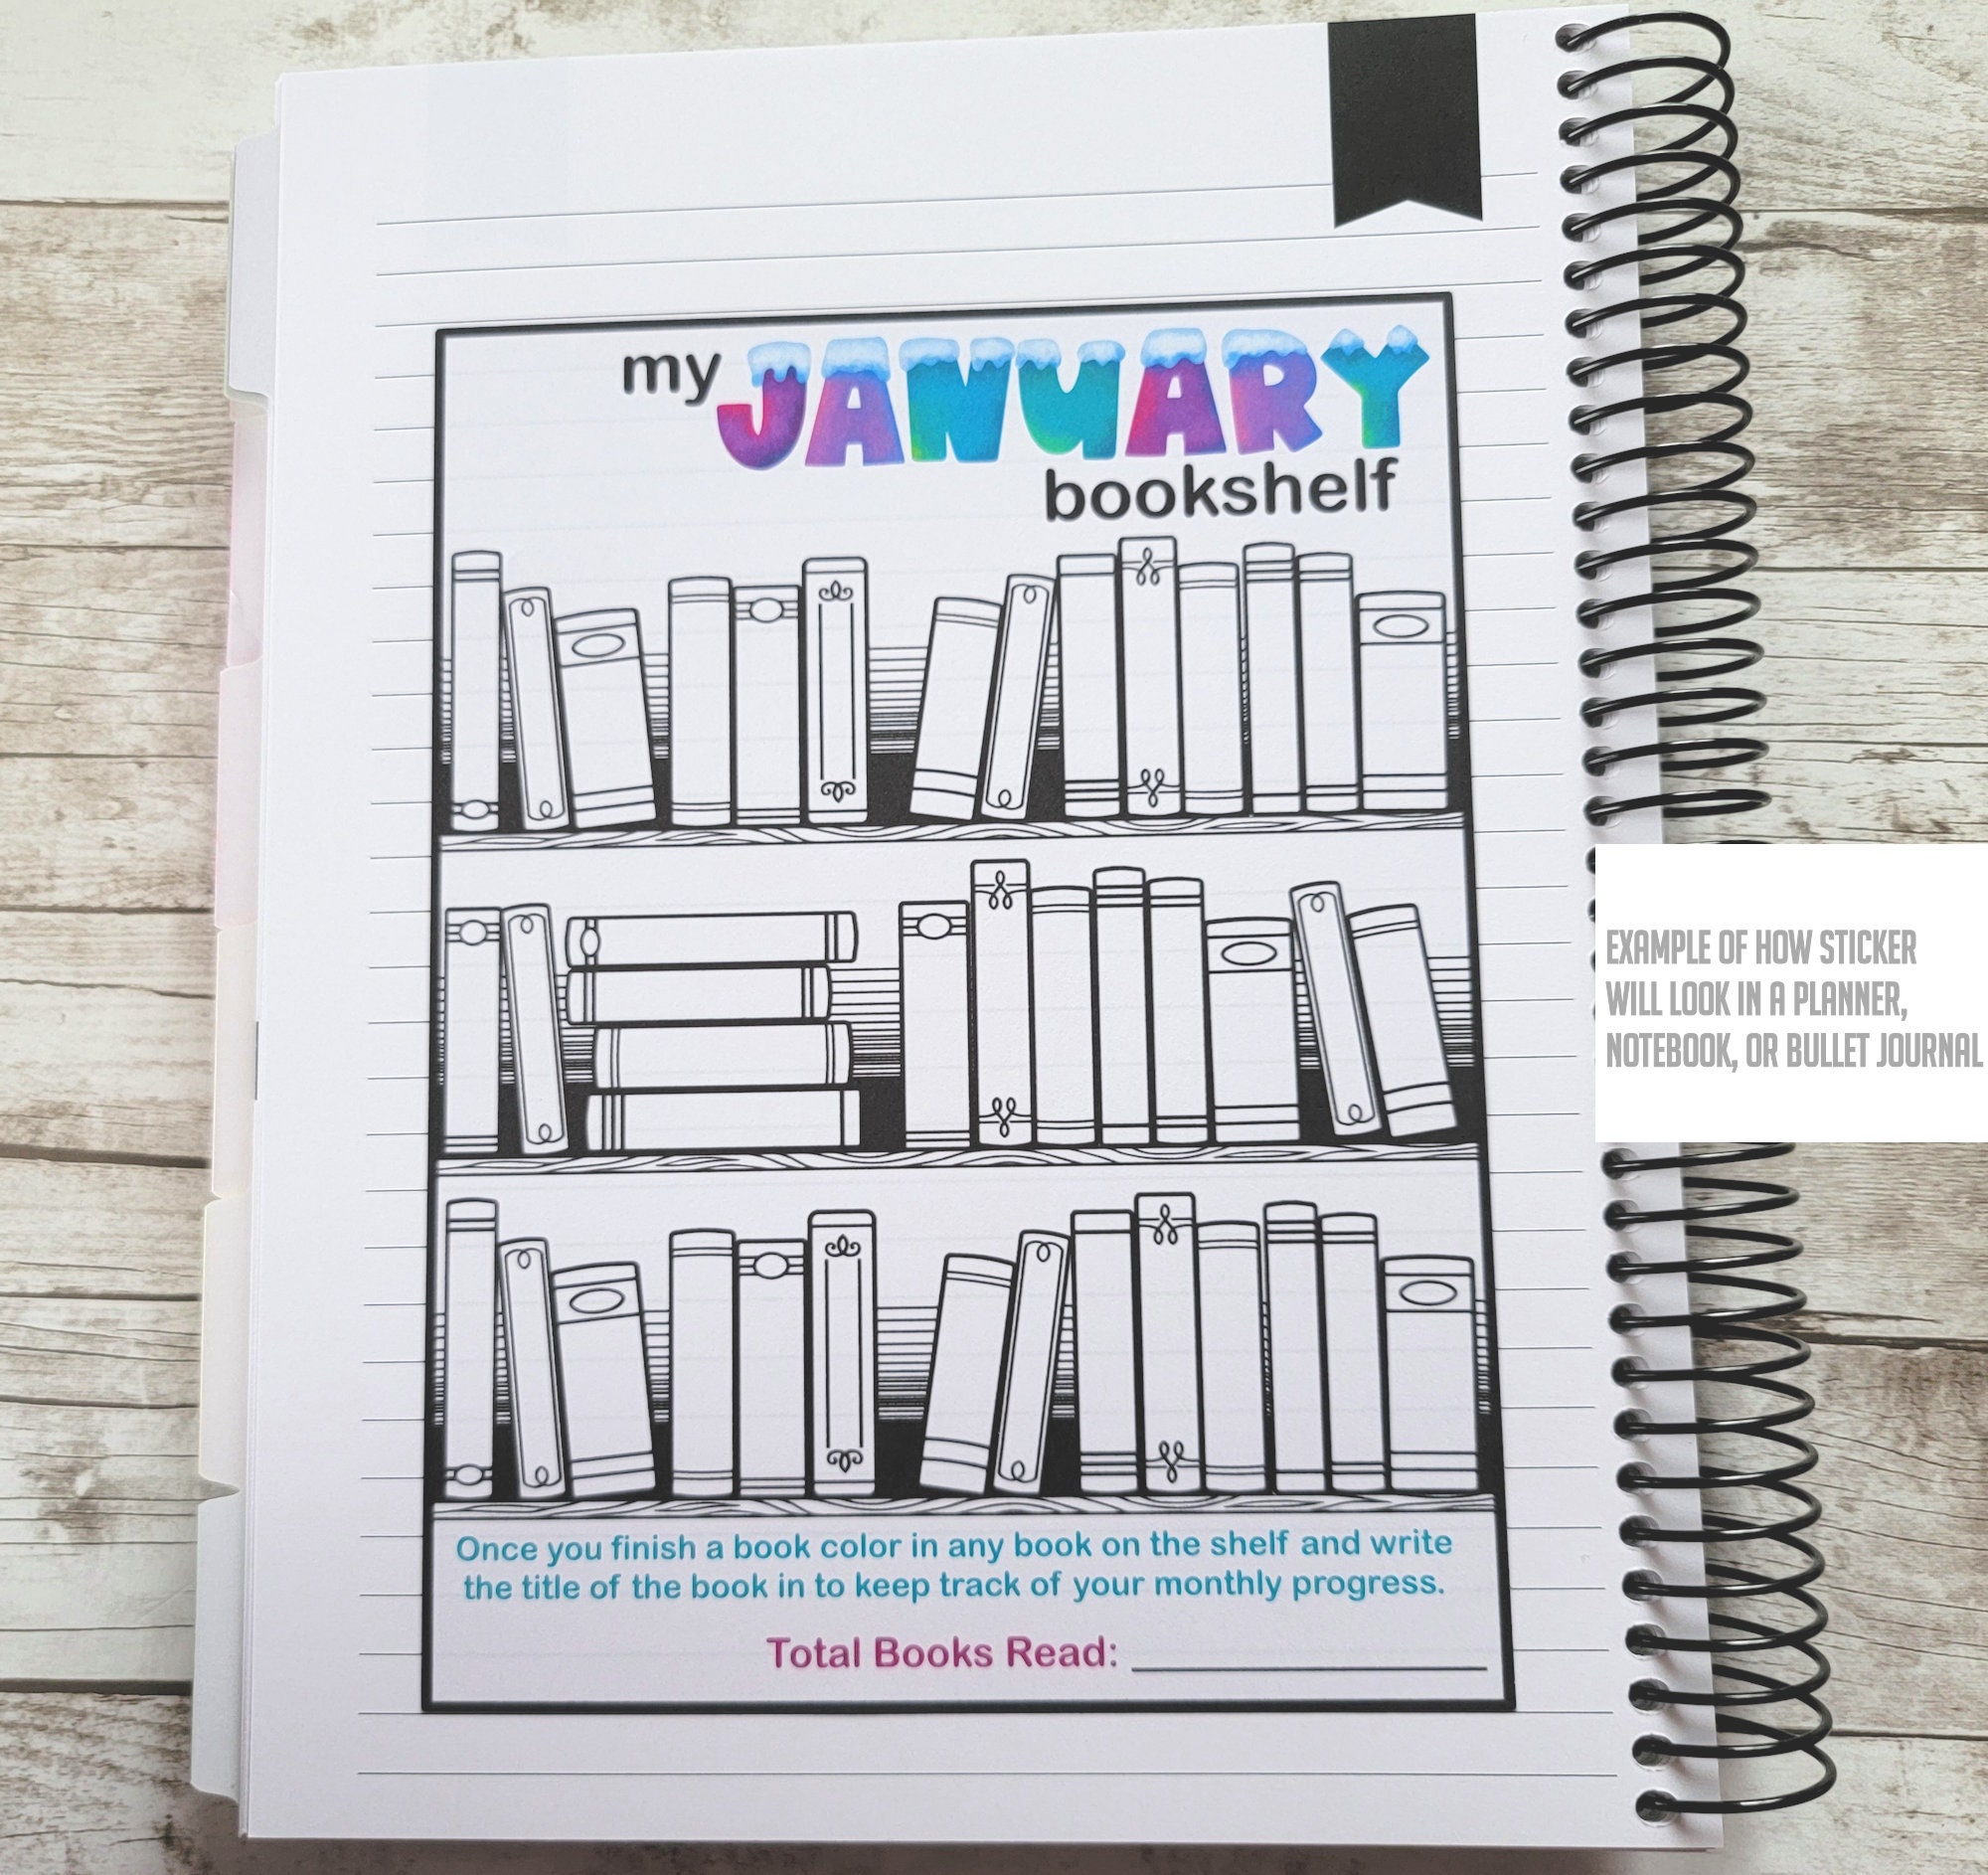 my JANUARY
bookshelf
EXAMPLE OF HOW STICKER
WILL LOOK IN A PLANNER,
NOTEBOOK, OR BULLET JOURNAL
Once you finish a book color in any book on the shelf and write
the title of the book in to keep track of your monthly progress.
Total Books Read: